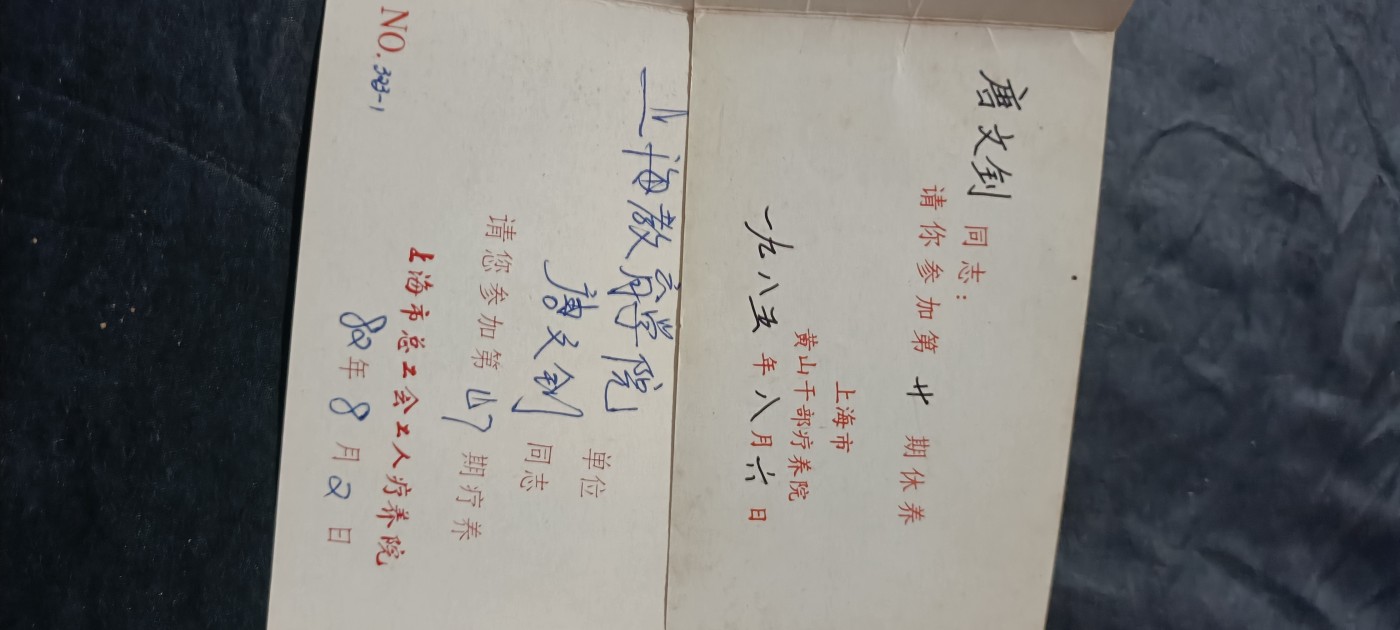 唐文剑 同志：
请你参加第 廿 期休养
上海市
黄山干部疗养院
一九八五 年 八 月 六 日
NO. 323-1
上海教育学院 单位
唐文剑 同志
请您参加第 期疗养
上海市总工会工人疗养院
82 年 8 月 2 日